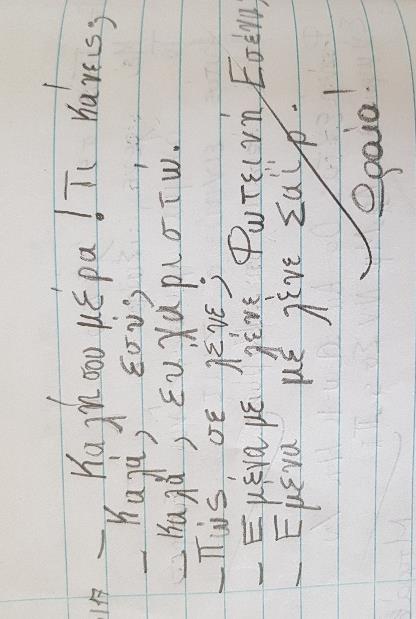 - Καλήσου μέρα! Τι κάνεις;
- Καλά, εσύ;
- Καλά, ευχαριστώ.
- Πώς σε λένε;
- Εμένα με λένε Φωτεινή Εσένα;
- Εμένα με λένε Σαΐρ.
Ωραία!